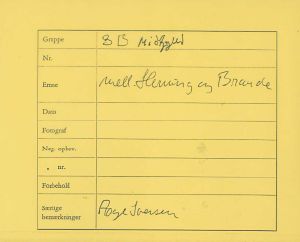 Gruppe 3B Midtjylland
Nr.
Emne mell. Herning og Brande
Dato
Fotograf
Neg. opbev.
" nr.
Forbehold
Særlige
bemærkninger Aage Iversen